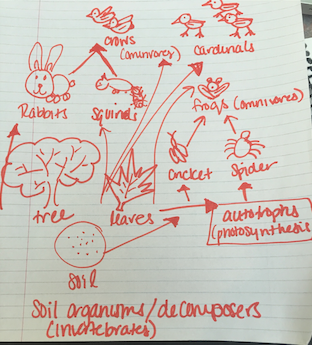 crows
(omnivores)
cardinals
Rabbits
Squirrels
frogs (omnivores)
Cricket
Spider
tree
leaves
autotrophs
(photosynthesis)
soil
Soil organisms/decomposers
(invertebrates)